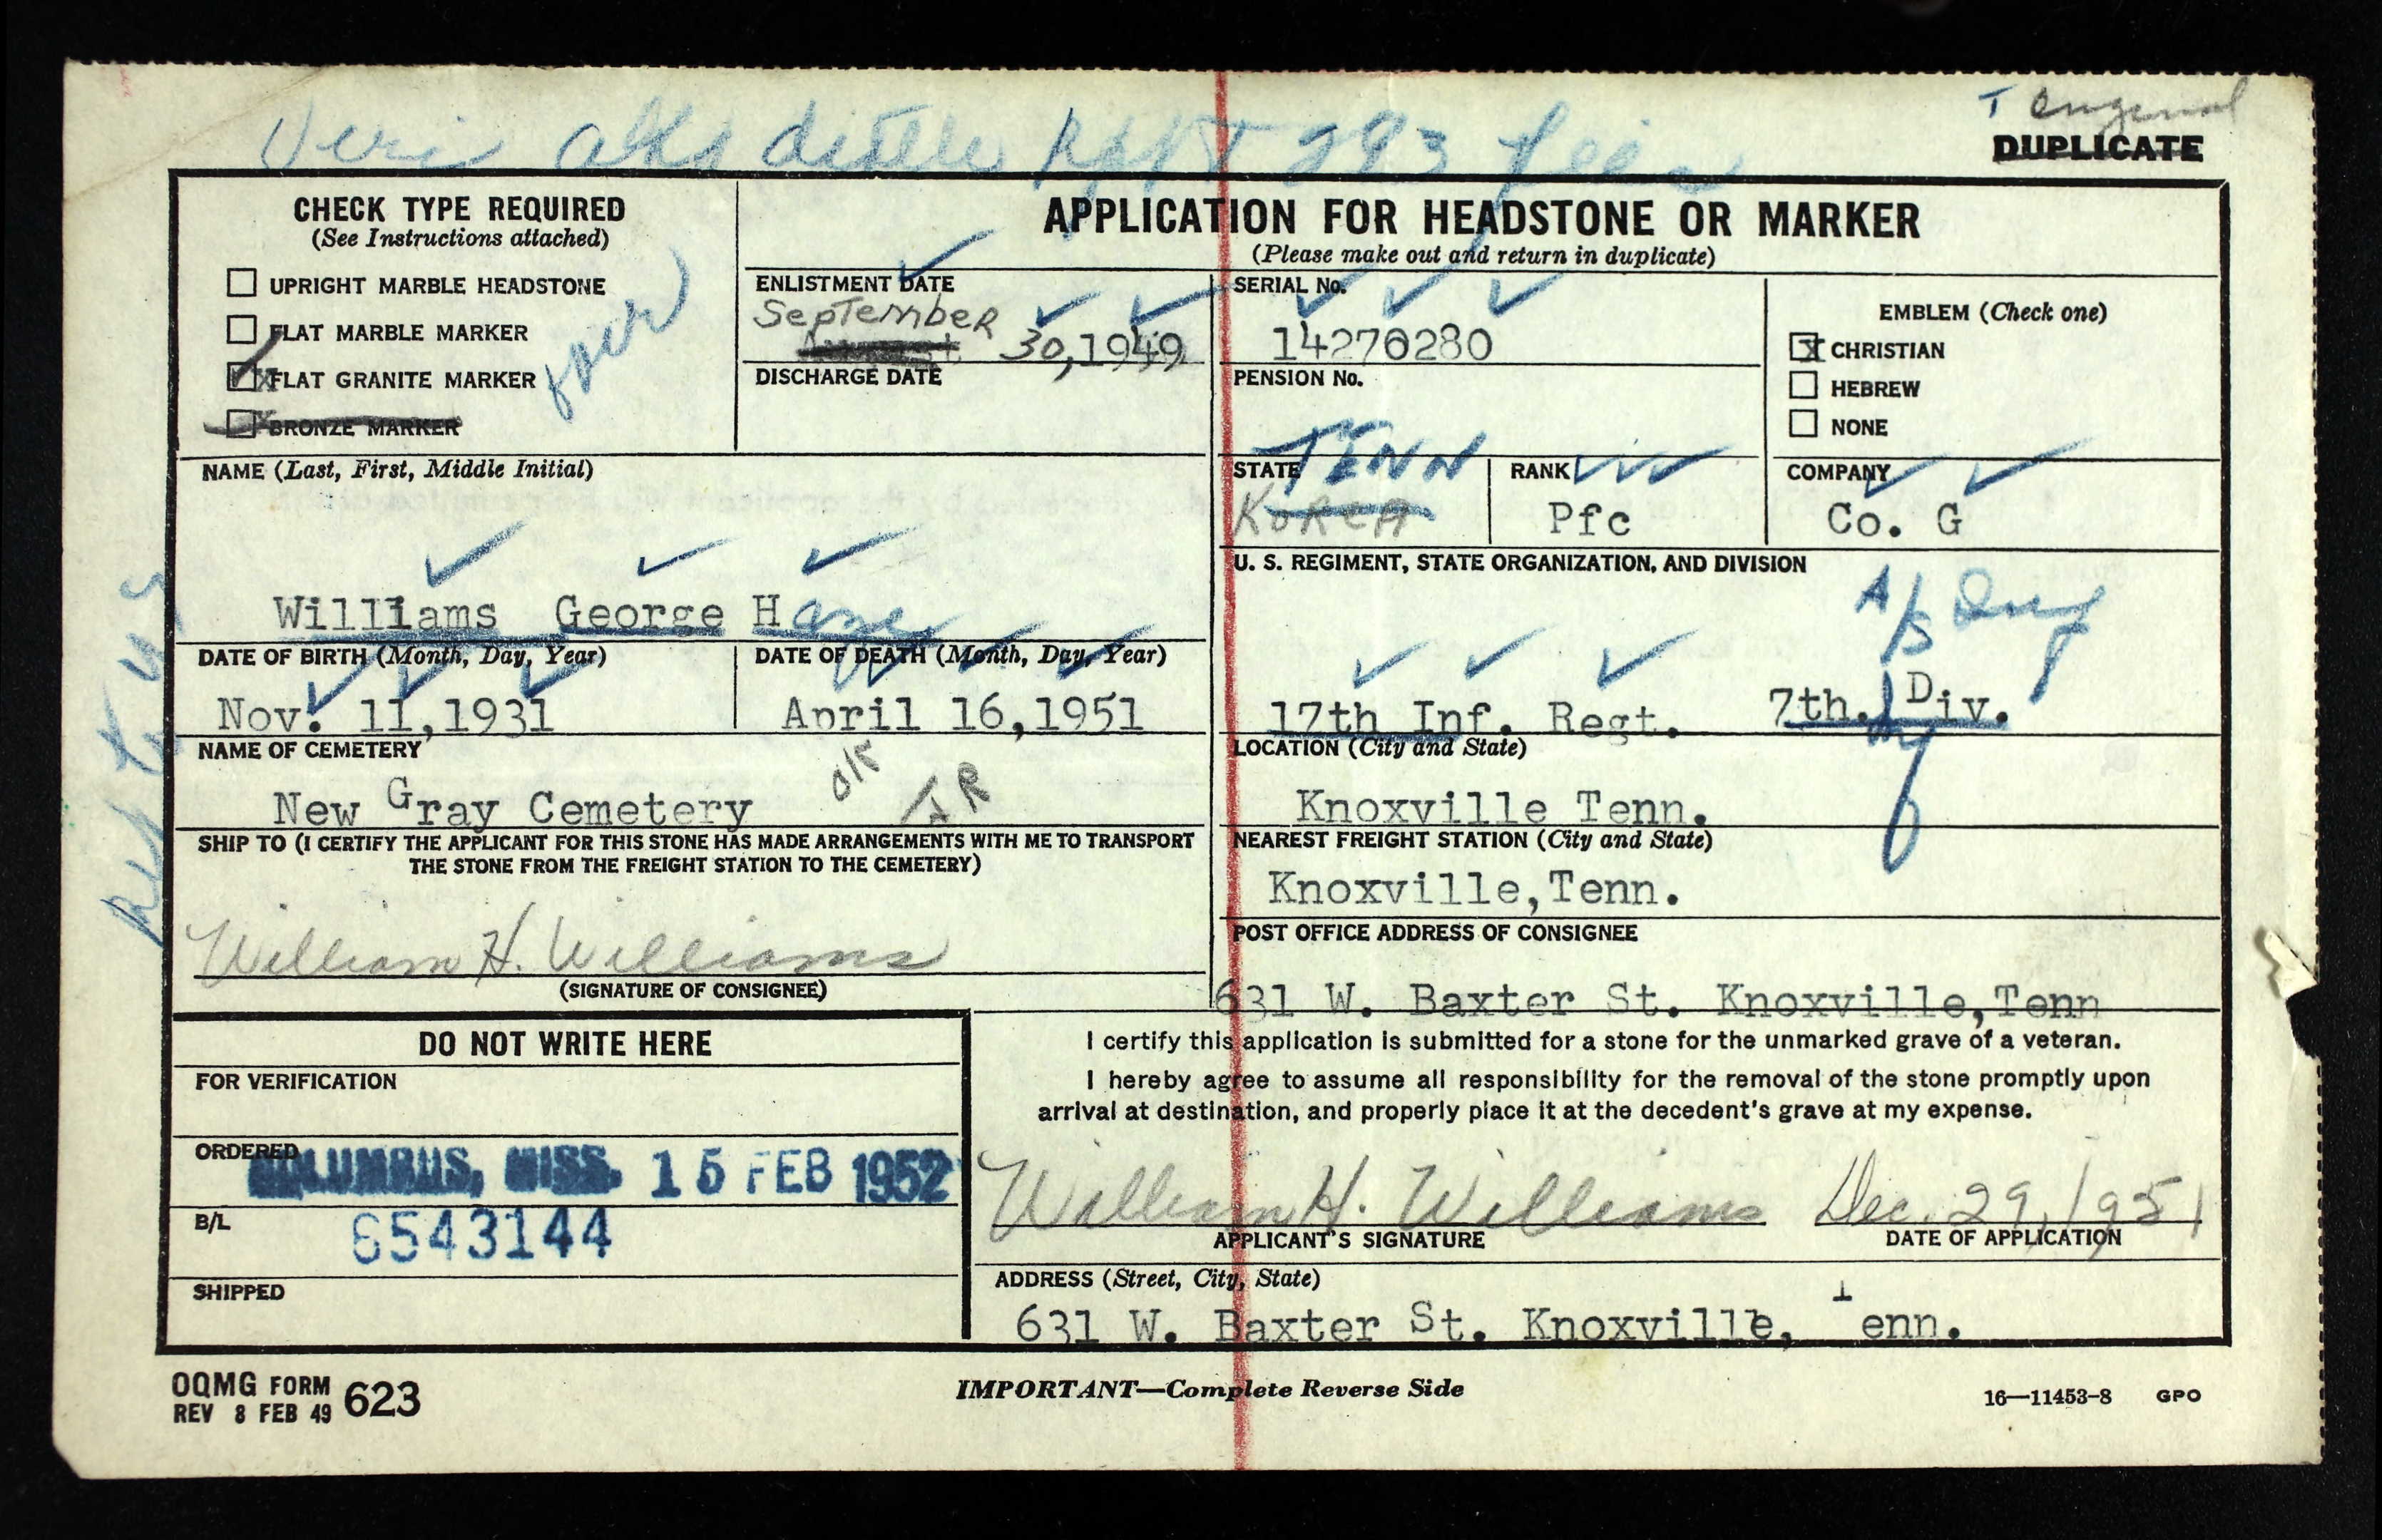 original
DUPLICATE
CHECK TYPE REQUIRED
(See Instructions attached)
UPRIGHT MARBLE HEADSTONE
FLAT MARBLE MARKER
FLAT GRANITE MARKER
BRONZE MARKER
(over)
APPLICATION FOR HEADSTONE OR MARKER
(Please make out and return in duplicate)
ENLISTMENT DATE
September
30, 1949
DISCHARGE DATE
SERIAL No.
14276280
PENSION No.
EMBLEM (Check one)
x CHRISTIAN
HEBREW
NONE
NAME (Last, First, Middle Initial)
Williams George H
STATE TENN
KOREA
RANK
Pfc
COMPANY
Co. G
U. S. REGIMENT, STATE ORGANIZATION, AND DIVISION
17th Inf. Regt. 7th. Div.
DATE OF BIRTH (Month, Day, Year)
Nov. 11,1931
DATE OF DEATH (Month, Day, Year)
April 16,1951
NAME OF CEMETERY
New Gray Cemetery
OK
LOCATION (City and State)
Knoxville Tenn.
SHIP TO (I CERTIFY THE APPLICANT FOR THIS STONE HAS MADE ARRANGEMENTS WITH ME TO TRANSPORT
THE STONE FROM THE FREIGHT STATION TO THE CEMETERY)
William H. Williams
(SIGNATURE OF CONSIGNEE)
NEAREST FREIGHT STATION (City and State)
Knoxville,Tenn.
POST OFFICE ADDRESS OF CONSIGNEE
631 W. Baxter St. Knoxville,Tenn
DO NOT WRITE HERE
FOR VERIFICATION
ORDERED
COLUMBUS, MISS. 15 FEB 1952
B/L
6543144
SHIPPED
I certify this application is submitted for a stone for the unmarked grave of a veteran.
I hereby agree to assume all responsibility for the removal of the stone promptly upon
arrival at destination, and properly place it at the decedent's grave at my expense.
William H. Williams Dec. 29, 1951
APPLICANT'S SIGNATURE DATE OF APPLICATION
ADDRESS (Street, City, State)
631 W. Baxter St. Knoxville, Tenn.
OQMG FORM 623
REV 8 FEB 49
IMPORTANT—Complete Reverse Side
16—11453-8 GPO